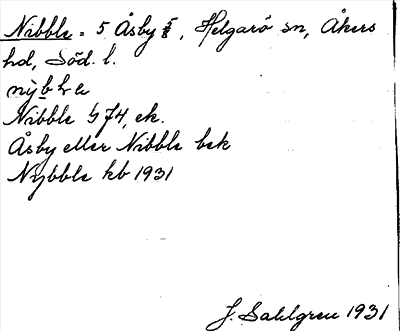 Nibble = 5 Åsby, Helgarö sn, Åkers
hd, Söd. l.
Nibble 474, ek.
Åsby eller Nibble bek
Nybble kb 1931
J. Sahlgren 1931